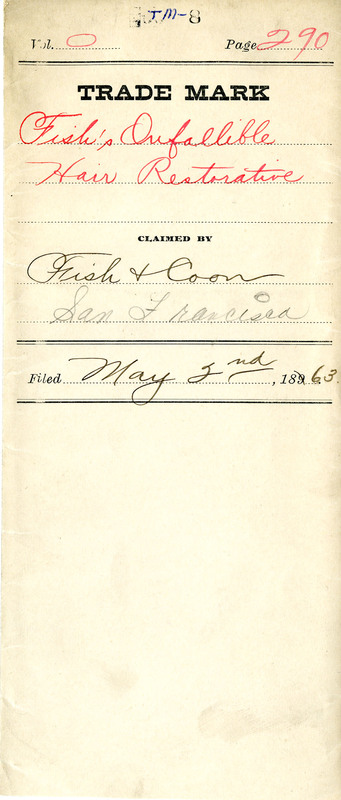 TM-8
Vol. O Page 290
TRADE MARK
Fish's Infallible
Hair Restorative
CLAIMED BY
Fish & Coon
San Francisco
Filed May 2nd, 1863.